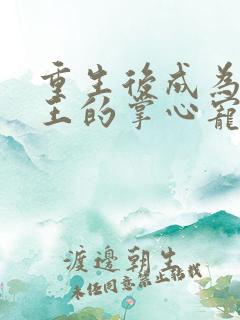 重生後成為
王的掌心寵
渡邊朝生
未任同意禁止转载